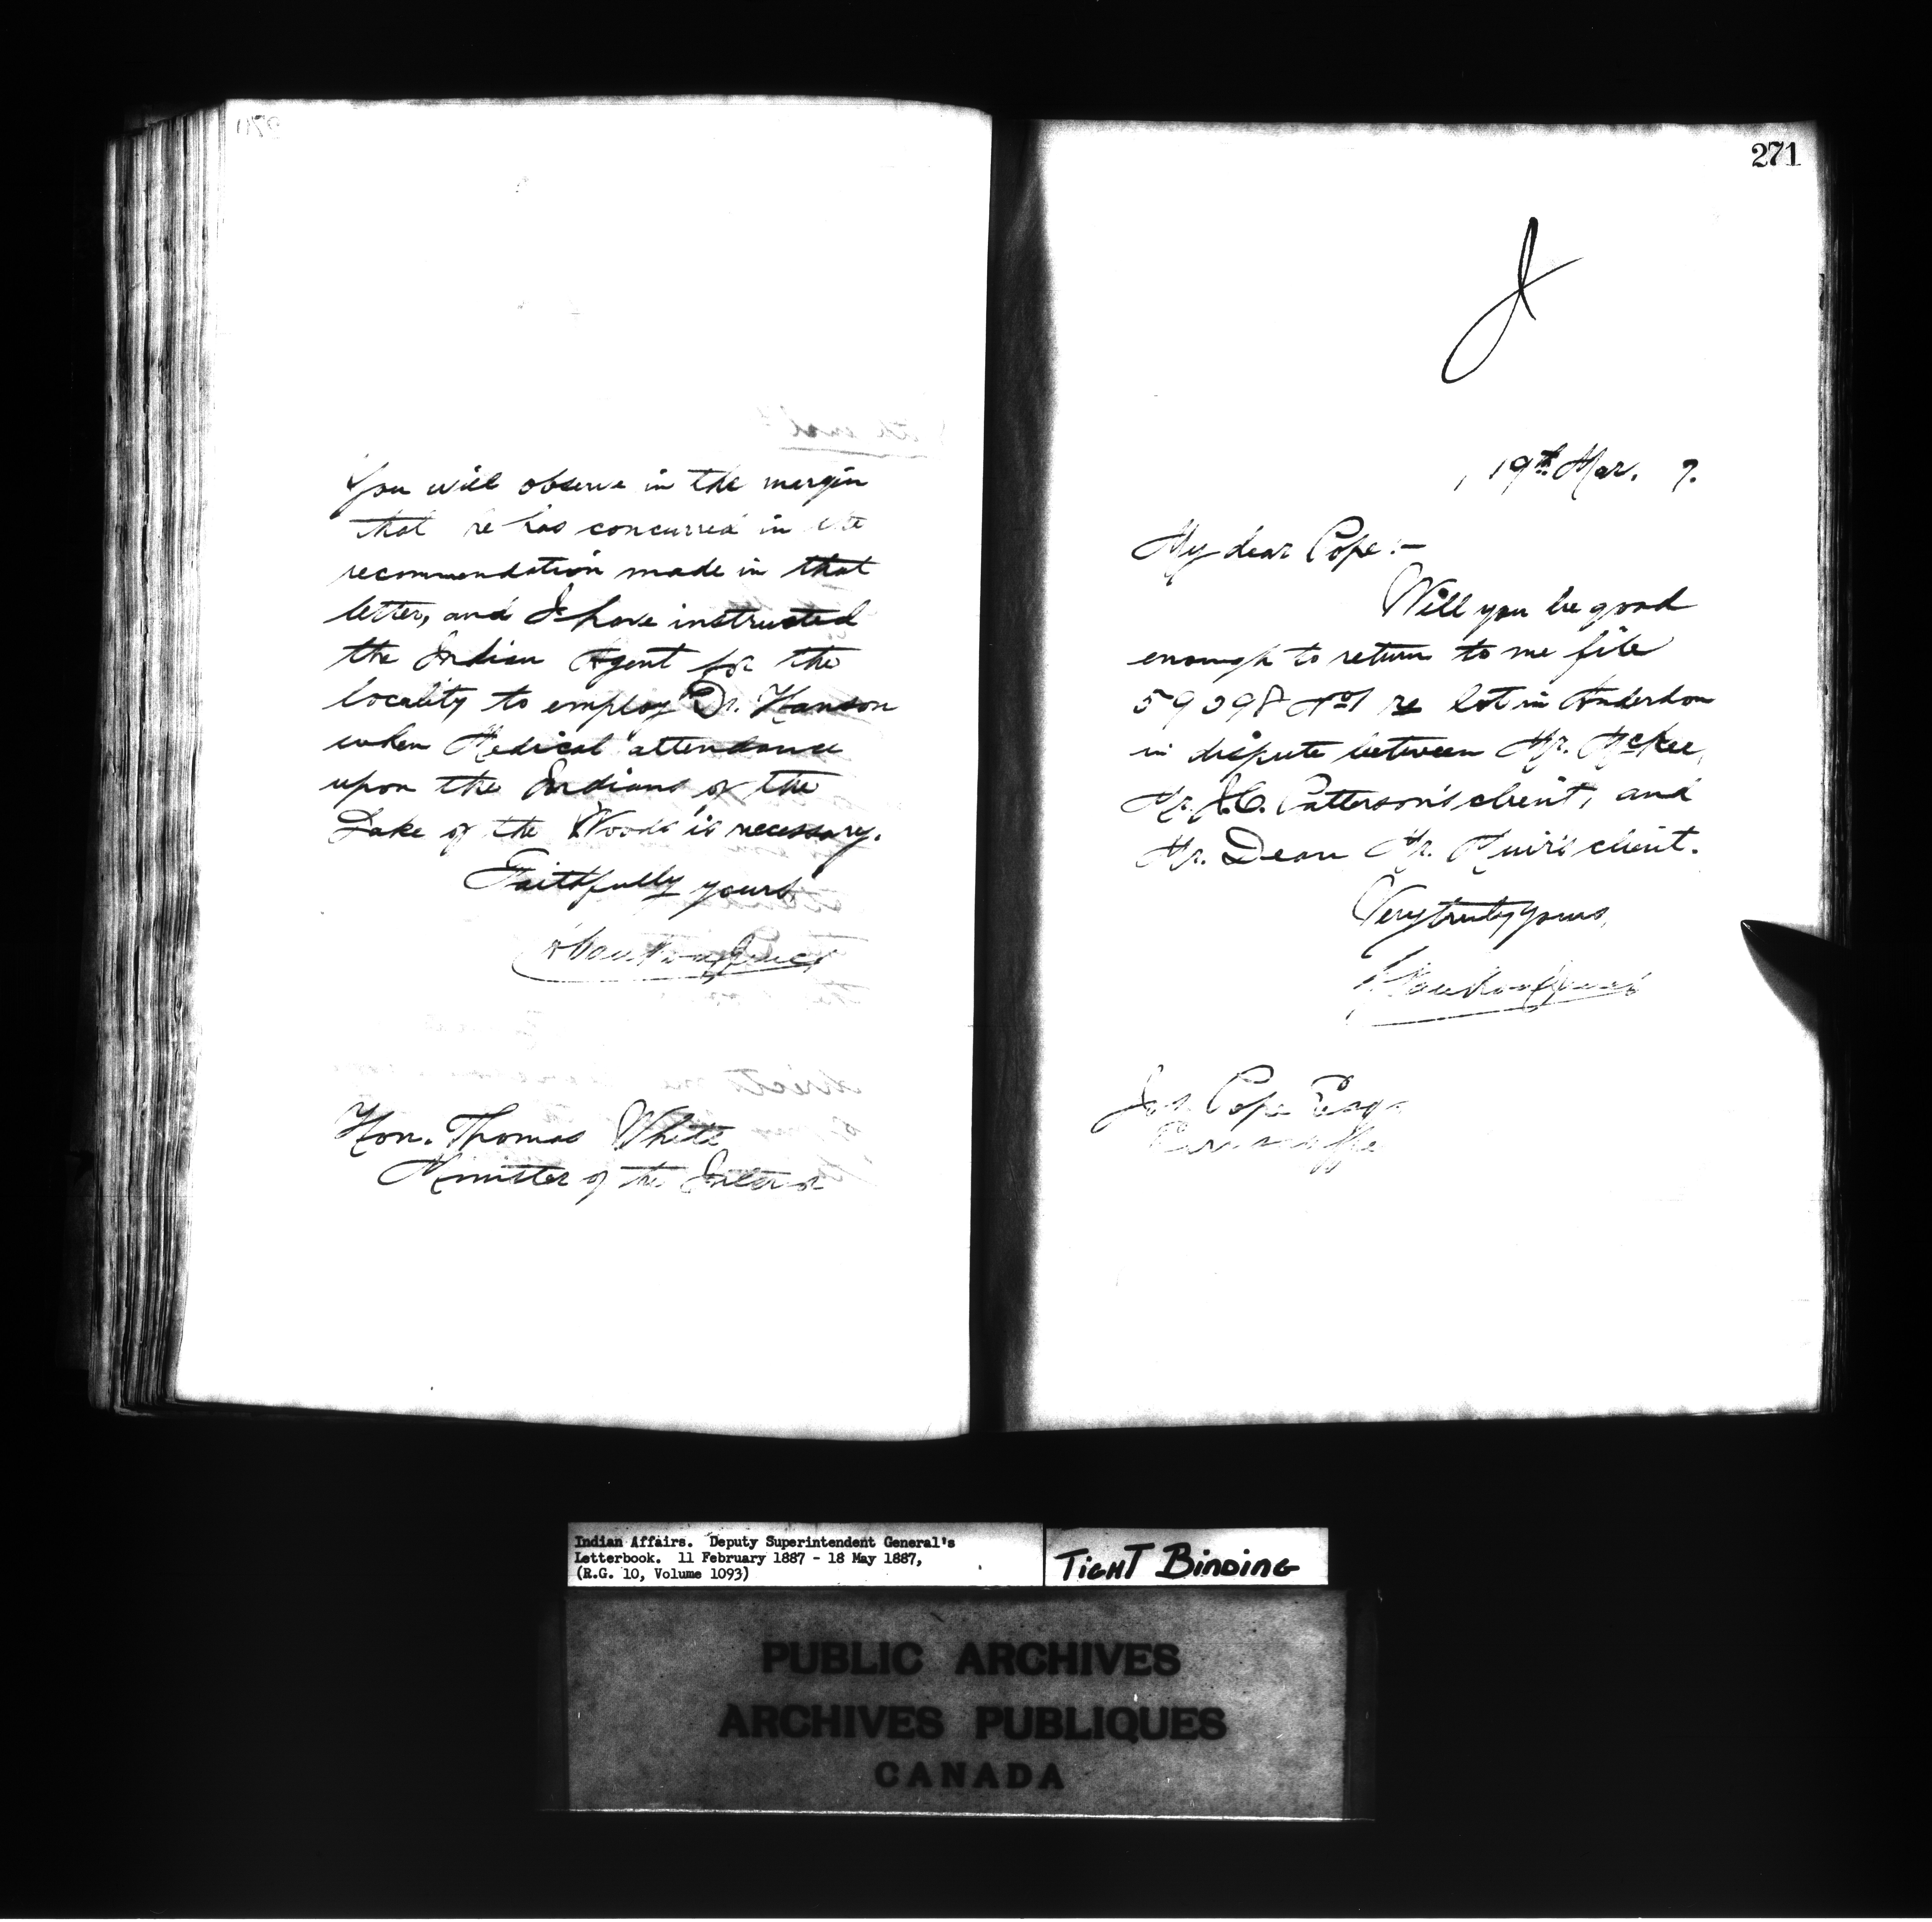 You will observe in the margin
that he has concurred in the
recommendation made in that
letter, and I have instructed
the Indian Agent for the
locality to employ Dr. Hanson
when Medical attendance
upon the Indians of the
Lake of the Woods is necessary.
Faithfully yours
Hon. Thomas White
Minister of the Interior
271
19th Mar. 7.
My dear Pope:—
Will you be good
enough to return to me file
re lot in Anderdon
in dispute between Mr. McKee,
Mr. J.C. Patterson's client, and
Mr. Dean Mr. client.
Very truly yours,
Jos. Pope Esq.
Indian Affairs. Deputy Superintendent General's
Letterbook. 11 February 1887 - 18 May 1887,
(R.G. 10, Volume 1093)
TIGHT BINDING
PUBLIC ARCHIVES
ARCHIVES PUBLIQUES
CANADA